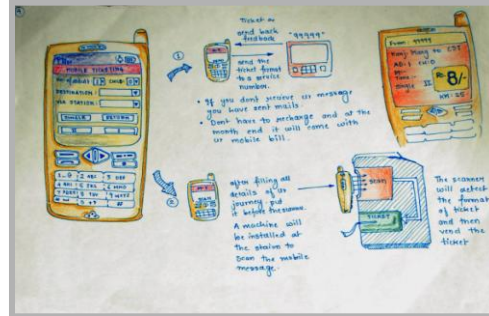 MOBILE TICKETING
No. of adults: 1 CHILD: 0
DESTINATION:
VIA STATION:
SINGLE RETURN
2 ABC
3 DEF
1
Ticket or
send back
feedback
"99999"
send the
ticket format
to a service
number.
• If you dont receive ur message
you have sent mails
• Dont have to recharge and at the
month end it will come with
ur mobile bill.
From: 99999
AD:1 CH:0
Single II
Rs. 8/-
KM: 25
2
after filling all
details of ur
journey put
A machine will
be installed at
the station to
scan the mobile
message.
SCAN
TICKET
The scanner
will detect
the format
of ticket
and then
vend the
ticket